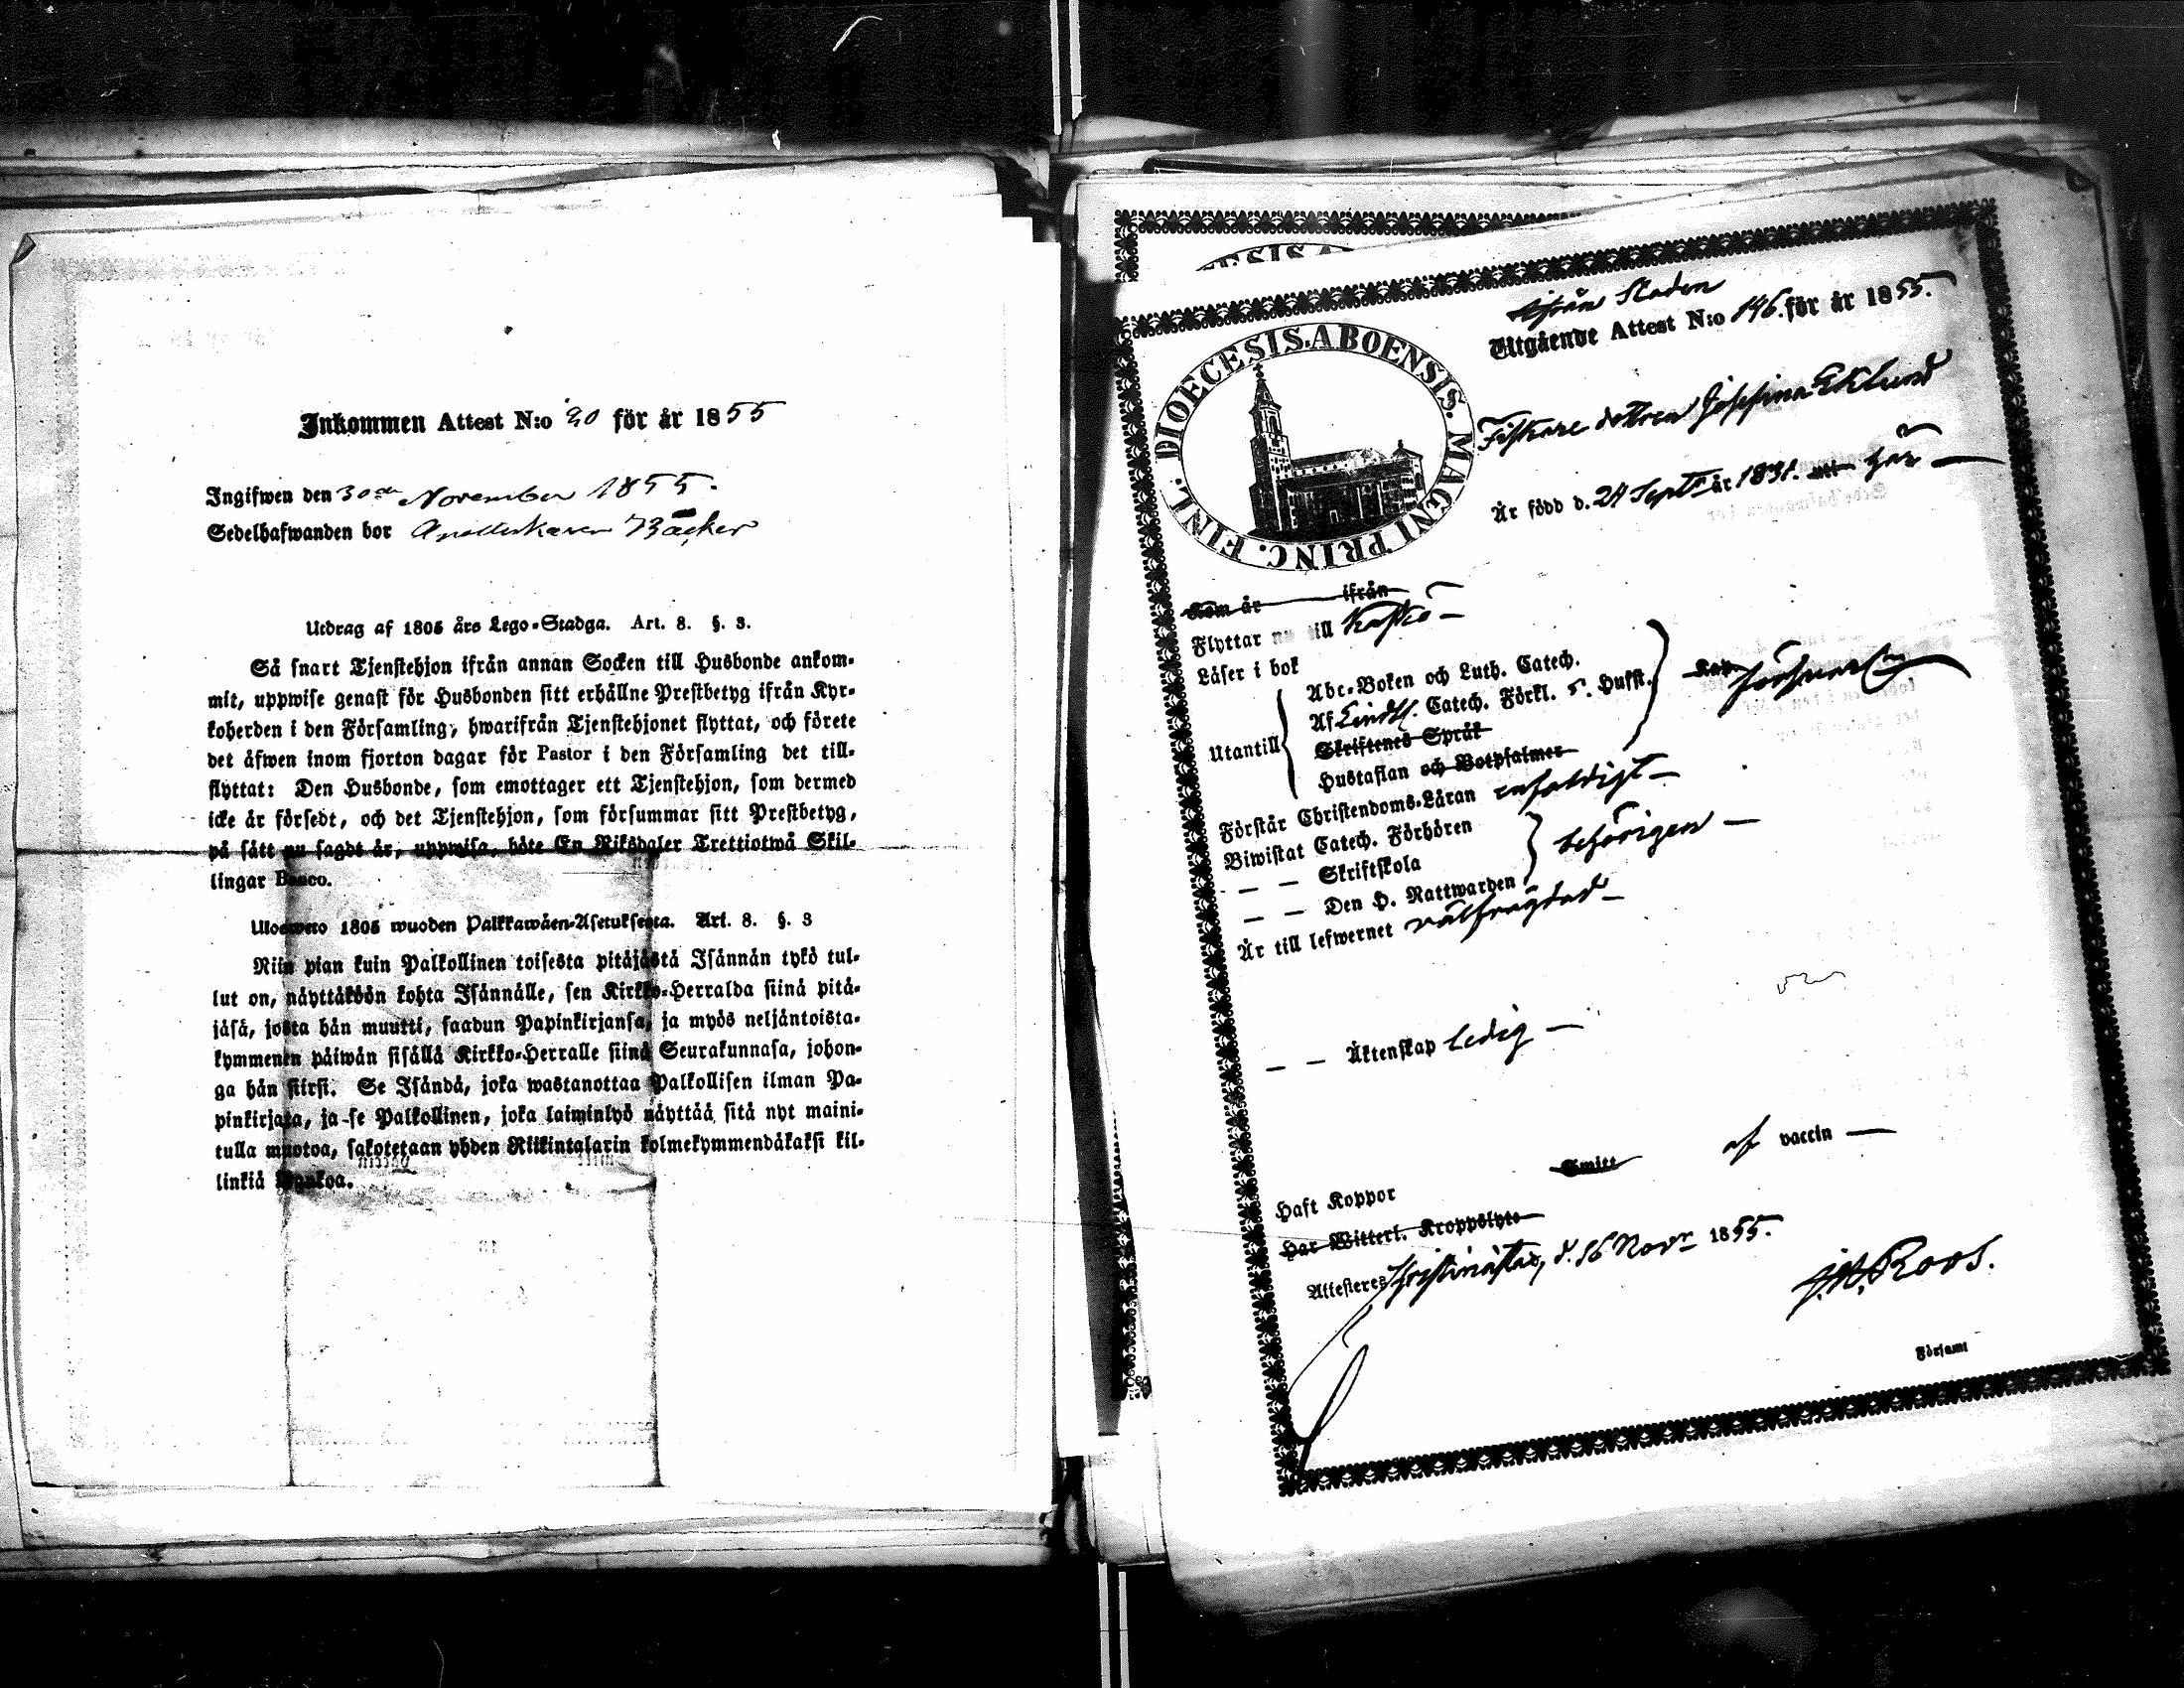 Inkommen Attest N:o 20 för år 1855
Ingifwen den 30de November 1855.
Sedelhafwanden bor Apothekaren Bäcker
Utdrag af 1805 års Lego-Stadga. Art. 8. §. 3.
Så snart Tjenstehjon ifrån annan Socken till Husbonde ankom-
mit, uppwise genast för Husbonden sitt erhållne Prestbetyg ifrån Kyr-
koherden i den Församling, hwarifrån Tjenstehjonet flyttat, och förete
det äfwen inom fjorton dagar för Pastor i den Församling det till-
flyttat: Den Husbonde, som emottager ett Tjenstehjon, som dermed
icke är försedt, och det Tjenstehjon, som försummar sitt Prestbetyg,
på sätt nu sagdt är, uppwisa, böte En Riksdaler Trettiotwå Skil-
lingar Banco.
Ulosweto 1805 wuoden Palkkawäen-Asetuksesta. Art. 8. §. 3
Niin pian kuin Palkollinen toisesta pitäjästä Isännän tykö tul-
lut on, näyttäköön kohta Isännälle, sen Kirkko-Herralda siinä pitä-
jäsä, josta hän muutti, saadun Papinkirjansa, ja myös neljäntoista-
kymmenen päiwän sisällä Kirkko-Herralle siinä Seurakunnasa, johon-
ga hän siirsi. Se Isändä, joka wastanottaa Palkollisen ilman Pa-
pinkirjata, ja se Palkollinen, joka laiminlyö näyttää sitä nyt maini-
tulla muotoa, sakotetaan yhden Riikintalarin kolmekymmendäkaksi kil-
linkiä Bankoa.
DIOECESIS.ABOENSIS. MAGNI PRINC. FINL.
ifrån Staden
Utgående Attest N:o 146. för år 1855.
Fiskare dottren Josefina Eklund
Är född d. 24 Septr år 1831. här
Kom år ifrån
Flyttar nu till Kaskö
Läser i bok
Utantill
Abc-Boken och Luth. Catech.
Af Lindh. Catech. Förkl. Hufst.
Skriftenes Språk
Hustaflan och Botpsalmer
försvarl.
Förstår Christendoms-Läran enfaldigt
Biwistat Catech. Förhören
— — Skriftskola
— — Den H. Nattwarden
behörigen
Är till lefwernet välfrägdad
— — Äktenskap ledig
Haft Koppor Smitt af vaccin
Har Witterl. Kroppslyte
Attesteres Kristinestad, d. 16 Novr 1855.
J. M. Roos.
Församl